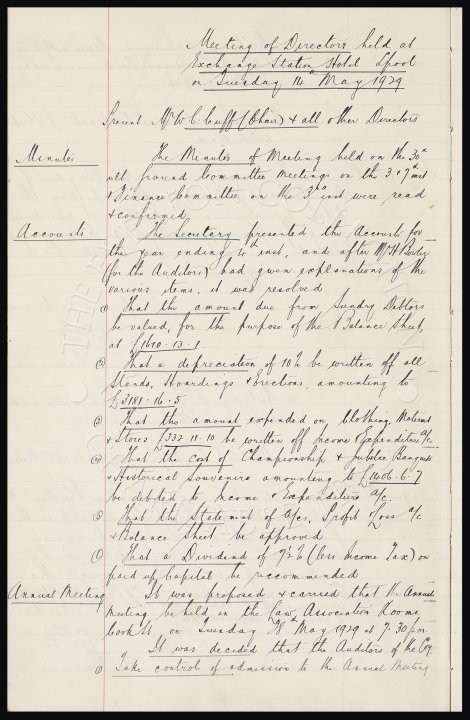 Meeting of Directors held at
Exchange Station Hotel Lpool
on Tuesday 14th May 1929
Present Mr W C Cuff (Chair) & all other Directors
Minutes
The Minutes of Meeting held on the 30th
ult, Ground Committee Meetings on the 3rd & 7th inst
& Finance Committee on the 3rd inst were read
& confirmed
Accounts
The Secretary presented the Accounts for
the year ending 4th inst, and after Mr
(for the Auditors) had given explanations of the
various items, it was resolved
① That the amount due from Sundry Debtors
be valued, for the purpose of the Balance Sheet,
at £1610.13.1
② That a depreciation of 10% be written off all
Stands, Hoardings & Erections, amounting to
£3181.16.5
③ That the amount expended on Clothing, Materials
& Stores £332.11.10 be written off Income & Expenditure a/c.
④ That the cost of Championship & Jubilee Banquet
& Historical Souvenirs amounting to £1406.6.7
be debited to Income & Expenditure a/c
⑤ That the Statement of a/cs, Profit & Loss a/c
& Balance Sheet be approved
⑥ That a Dividend of 7½% (less Income Tax) on
paid up Capital be recommended
Annual Meeting
It was proposed & carried that the Annual
Meeting be held in the Law Association Rooms
Cook St on Tuesday 28th May 1929 at 7.30 p.m.
It was decided that the Auditors of the Coy
① Take control of admission to the Annual Meeting